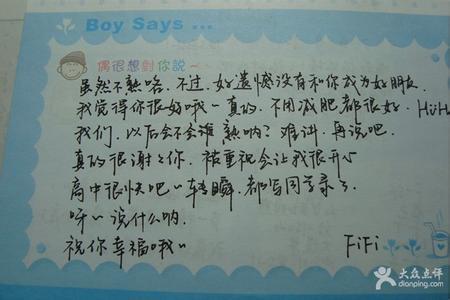 Boy Says ...
偶很想對你說~
虽然不熟咯.不过.好遗憾没有和你成为好朋友.
我觉得你很好哦~真的.不用减肥都很好.HiHi
我们.以后会不会满熟呐?难讲.再说吧.
真的很谢谢你.被重视会让我很开心
高中很快吧~转瞬.都写同学录了.
呀~说什么呐.
祝你幸福哦~ FiFi
大众点评
dianping.com